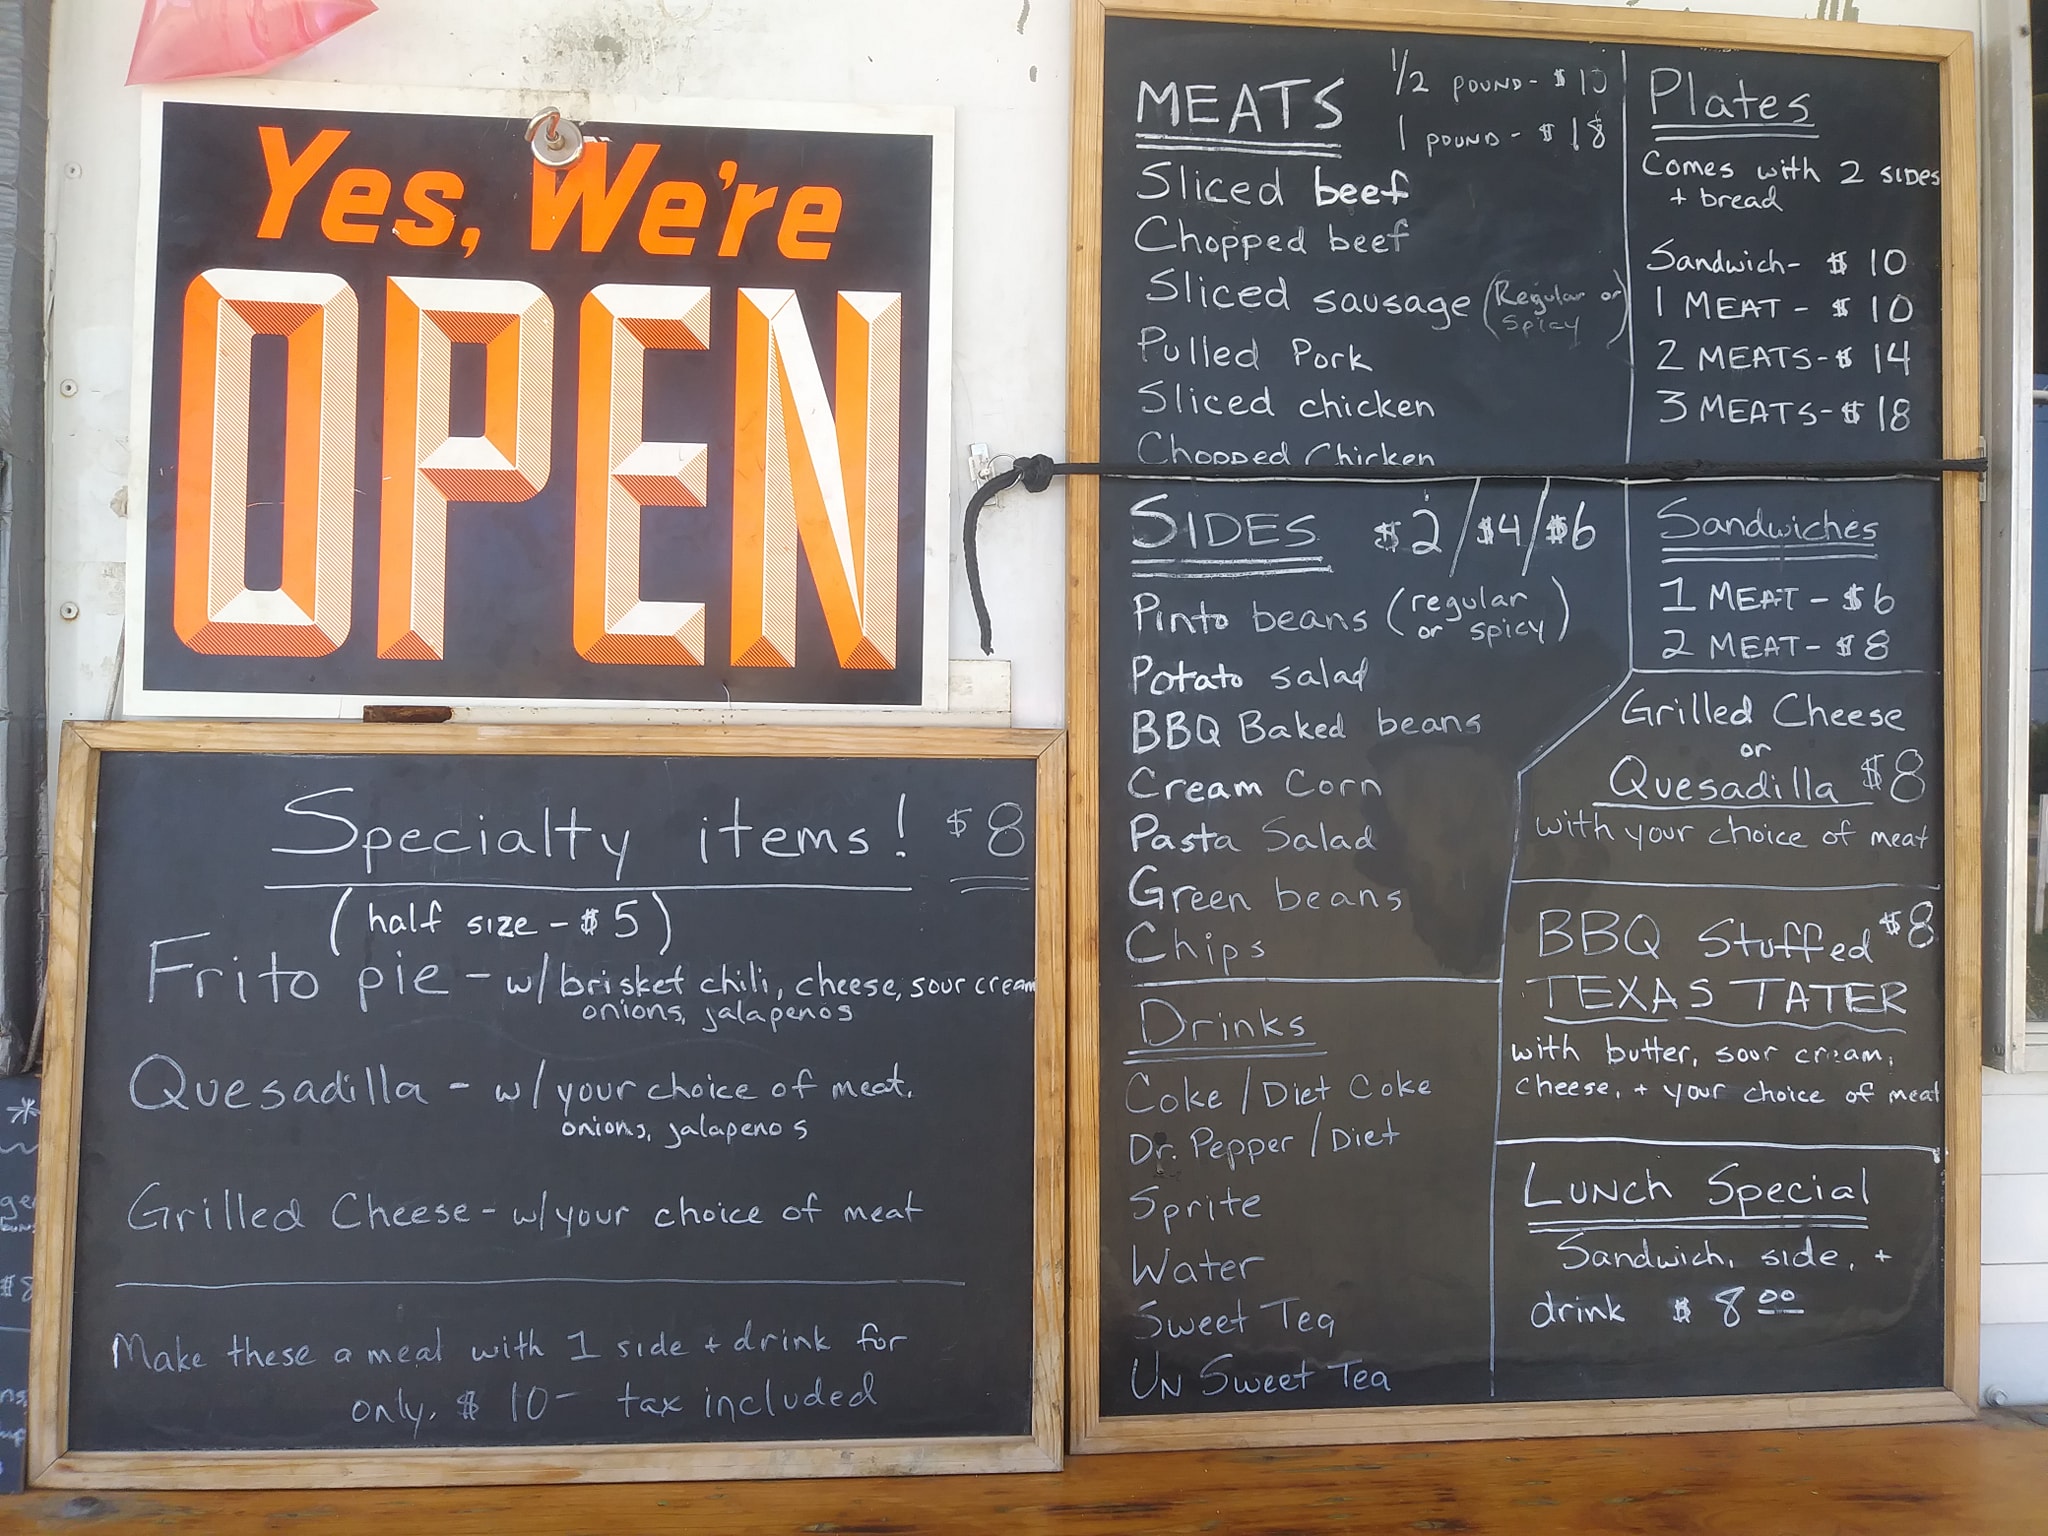 Yes, We're
OPEN
Specialty items! $8
(half size - $5)
Frito pie - w/ brisket chili, cheese, sour cream
onions, jalapenos
Quesadilla - w/ your choice of meat,
onions, jalapenos
Grilled Cheese - w/ your choice of meat
Make these a meal with 1 side + drink for
only, $10 - tax included
MEATS
1/2 POUND - $10
1 POUND - $18
Sliced beef
Chopped beef
Sliced sausage (Regular or
Spicy)
Pulled Pork
Sliced chicken
Chopped Chicken
SIDES $2/$4/$6
Pinto beans (regular
or spicy)
Potato salad
BBQ Baked beans
Cream Corn
Pasta Salad
Green beans
Chips
Drinks
Coke / Diet Coke
Dr. Pepper / Diet
Sprite
Water
Sweet Tea
UN Sweet Tea
Plates
Comes with 2 SIDES
+ bread
Sandwich - $10
1 MEAT - $10
2 MEATS - $14
3 MEATS - $18
Sandwiches
1 MEAT - $6
2 MEAT - $8
Grilled Cheese
or
Quesadilla $8
with your choice of meat
BBQ Stuffed $8
TEXAS TATER
with butter, sour cream,
cheese, + your choice of meat
LUNCH Special
Sandwich, side, +
drink $8.00
$8